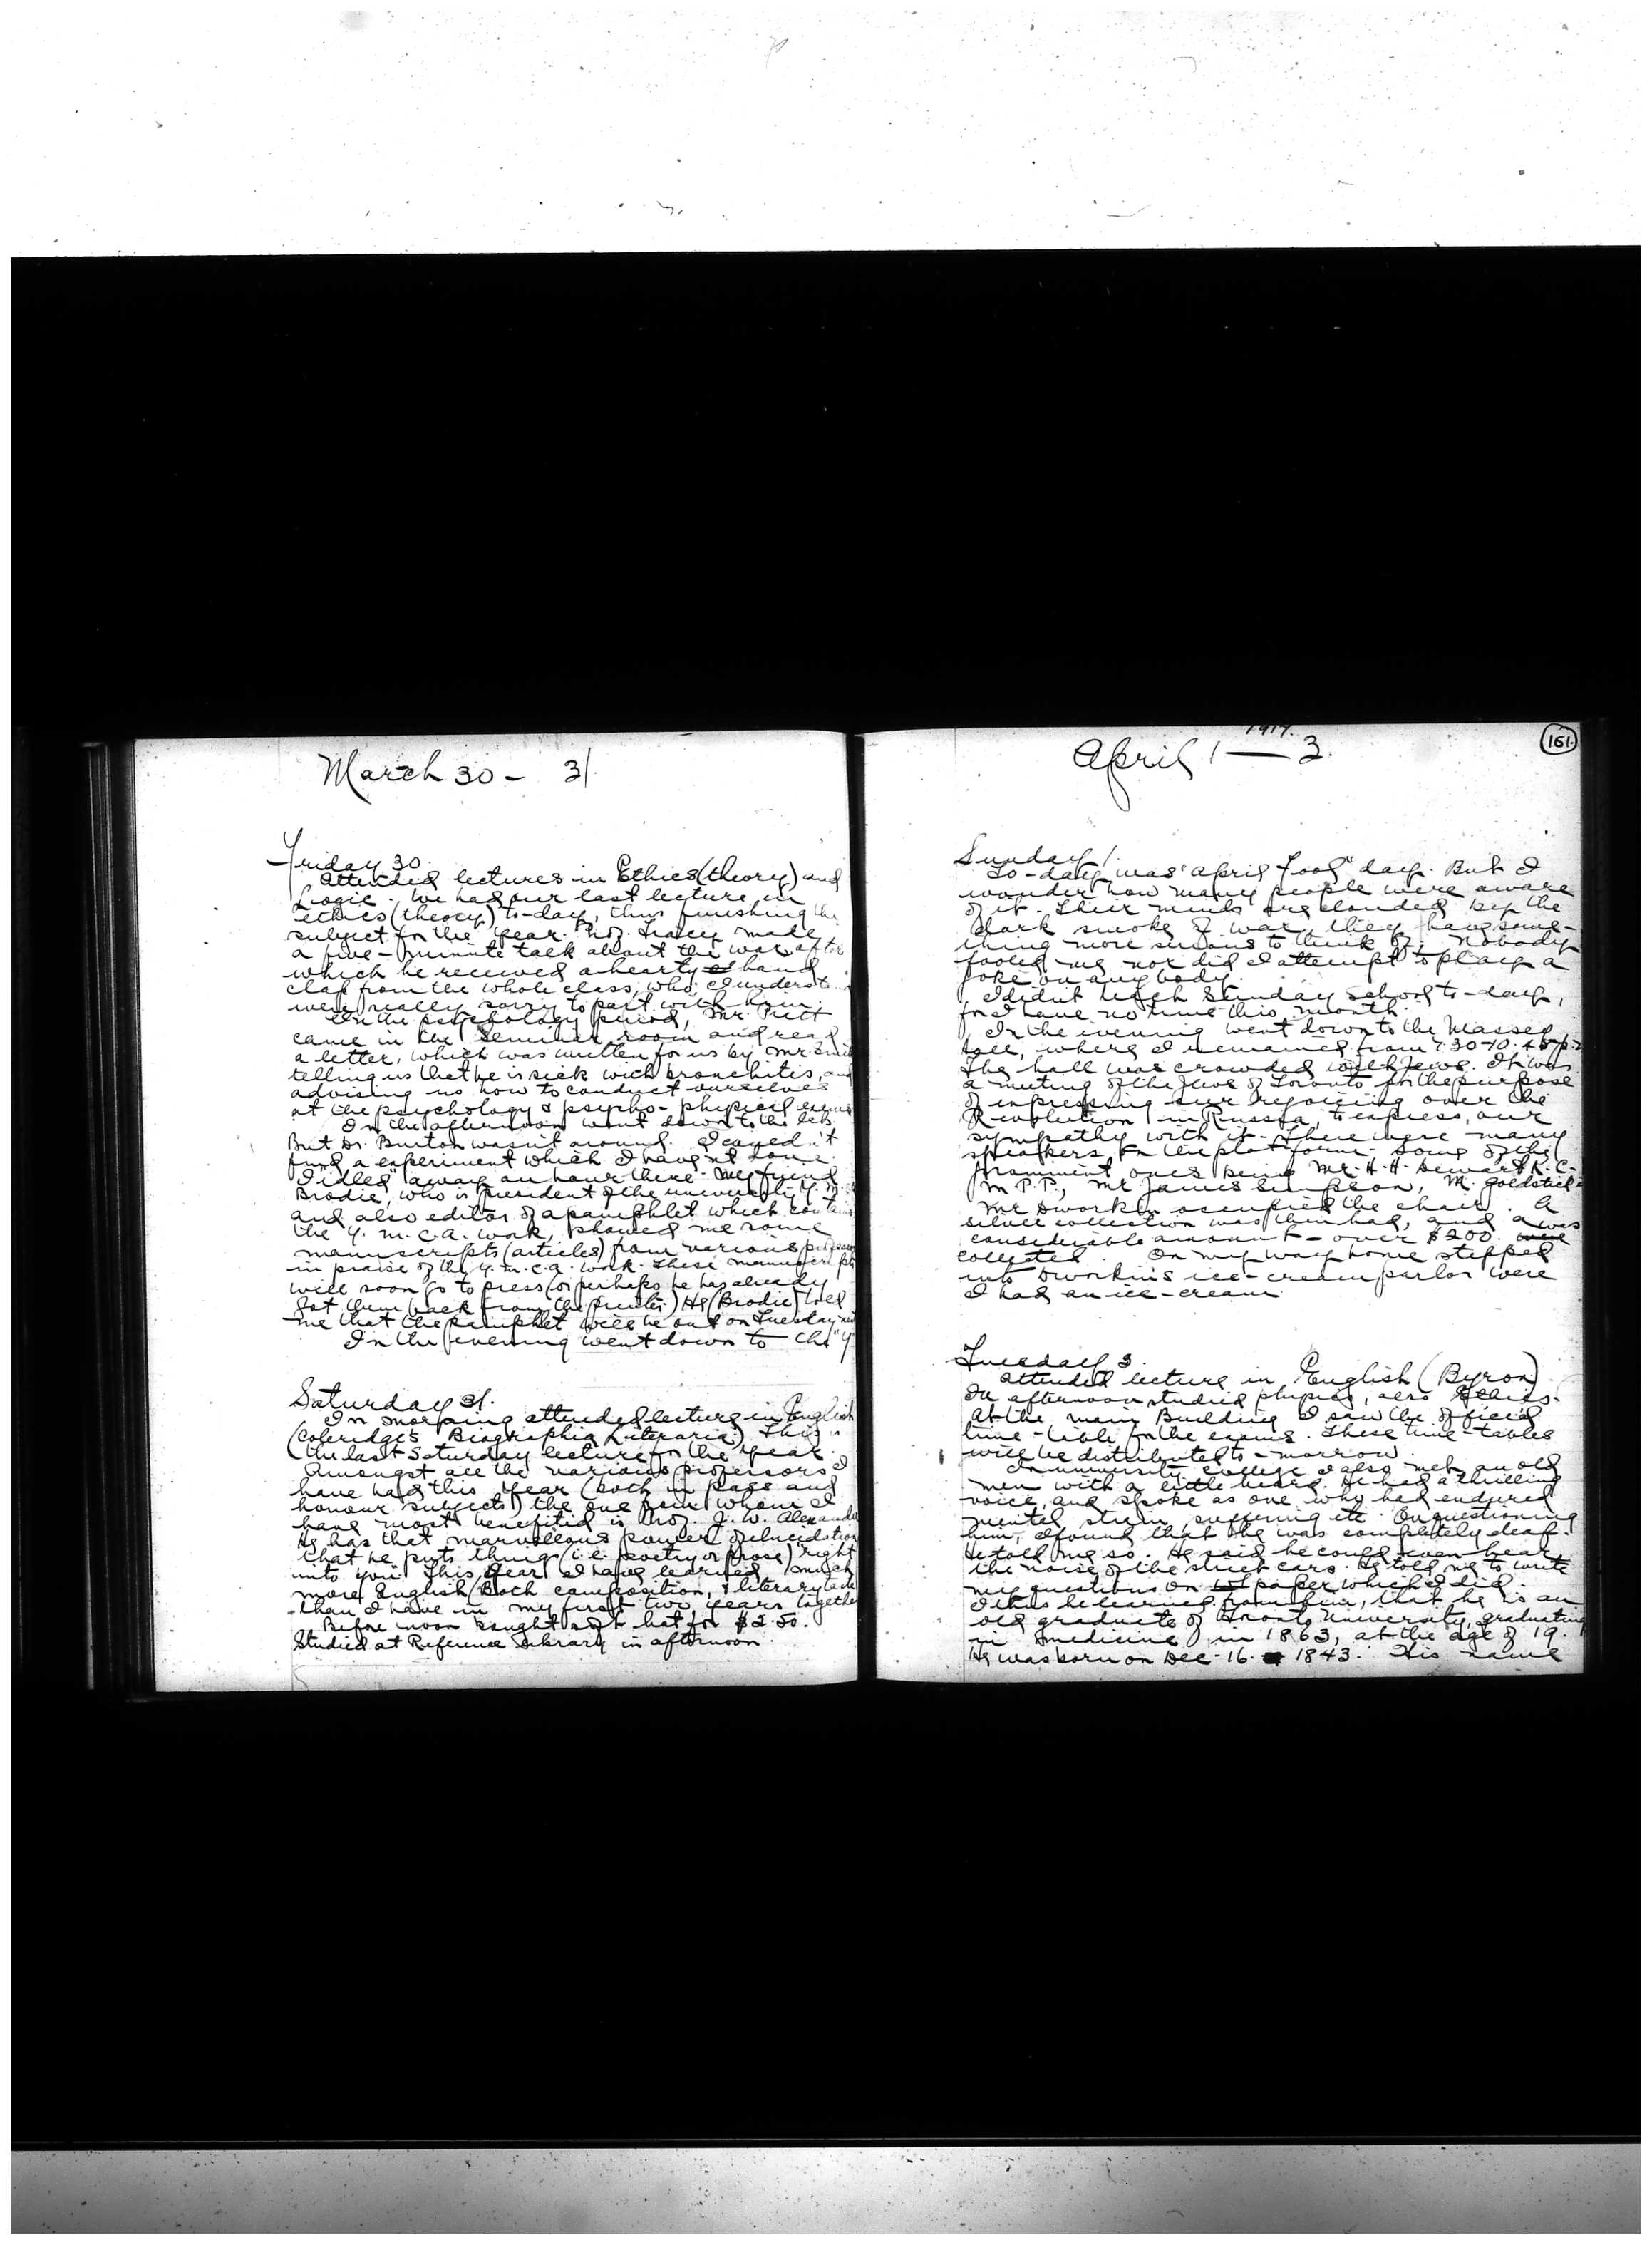 March 30 - 31.
Friday 30.
Attended lectures in Ethics (theory) and
Logic. We had our last lecture in
ethics (theory) to-day, thus finishing the
subject for the year. Prof. Tracey made
a five-minute talk about the war after
which he received a hearty hand
clap from the whole class, who, I underst
were really sorry to part with him.
In the psychology period, Mr. Pratt
came in the Seminar room and read
a letter, which was written for us by Mr. Smith
telling us that he is sick with bronchitis, and
advising us how to conduct ourselves
at the psychology & psycho-physical exams
In the afternoon went down to the lab.
But Dr. Burton wasn't around. I couldn't
find a experiment which I haven't done.
I idled away an hour there. My friend
Brodie, who is president of the university Y.M.
and also editor of a pamphlet which contains
the Y.M.C.A. work, showed me some
manuscripts (articles) from various
in praise of the Y.M.C.A. work. These manuscripts
will soon go to press (or perhaps he has already
got them back from the printer.) He (Brodie) told
me that the pamphlet will be out on Tuesday
In the evening went down to the "Y"
Saturday 31.
In morning attended lecture in English
(Coleridge's Biographia Literaria.) This is
the last Saturday lecture for the year.
Amongst all the various professors I
have had this year (both in pass and
honour subjects) the one from whom I
have most benefitid is Prof. J. W. Alexander
He has that marvellous power of elucidation
that he puts things (i.e. poetry or prose) "right
unto you". This year I have learned much
more English (Both composition, & literary
than I have in my first two years together
Before noon bought soft hat for $2.50.
Studied at Reference Library in afternoon.
1917.
April 1 — 3.
161.
Sunday 1.
To-day was "April Fool" day. But I
wonder how many people were aware
of it. Their minds are clouded by the
dark smoke of war, they have some-
thing more serious to think of. Nobody
fooled me nor did I attempt to play a
joke on anybody.
I didn't teach Sunday School to-day,
for I have no time this month.
In the evening went down to the Massey
Hall, where I remained from 7.30-10.45 p.m
The hall was crowded with Jews. It was
a meeting of the Jews of Toronto for the purpose
of expressing our rejoicing over the
Revolution in Russia, to express our
sympathy with it. There were many
speakers on the platform. Some of the
prominent ones being Mr. H. H. Dewart K.C.
M.P.P., Mr James Simpson, M. Goldstick
Mr Dworkin occupied the chair. A
silver collection was then had, and a
considerable amount - over $200. was
collected. On my way home stepped
into Dworkin's ice-cream parlor were
I had an ice-cream.
Tuesday 3.
Attended lecture in English (Byron)
In afternoon studied physics, also Ethics.
At the main Building I saw the official
time-table for the exams. These time-tables
will be distributed to-morrow.
In university college I also met an old
man with a little beard. He had a thrilling
voice, and spoke as one who had endured
mental strain, suffering etc. On questioning
him, I found that he was completely deaf.
He told me so. He said he could even hear
the noise of the street cars. He told me to write
my questions on paper which I did.
I thus he learned from him, that he is an
old graduate of Toronto University, graduating
in medicine in 1863, at the age of 19.
He was born on Dec. 16. 1843. His name